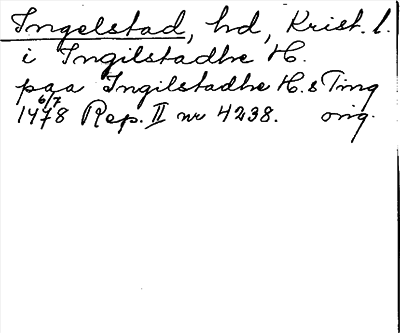 Ingelstad, hd, Krist. l.
i Ingilstadhe H.
paa Ingilstadhe H.s Ting
1478 6/7 Rep. II nr 4238. orig.